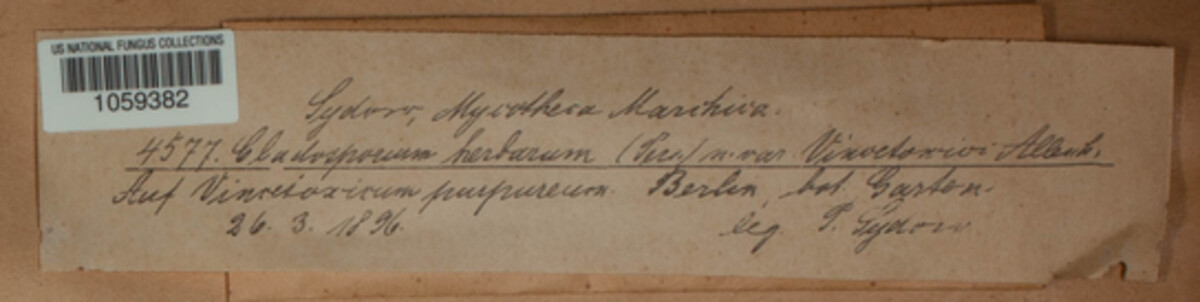 US NATIONAL FUNGUS COLLECTIONS
1059382
Sydow, Mycotheca Marchica.
4577. Cladosporium herbarum (Pers.) n. var. Vincetoxici Allesch.
Auf Vincetoxicum purpureum. Berlin, bot. Garten.
26. 3. 1896. leg. P. Sydow.